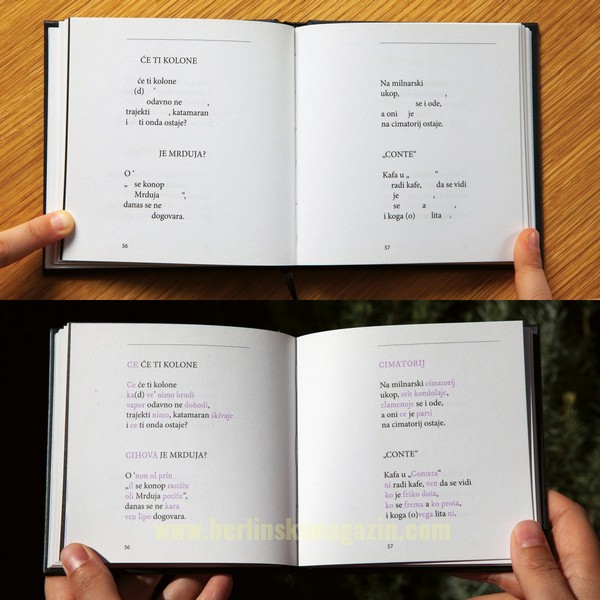 ĆE TI KOLONE
će ti kolone
(d) '
odavno ne ,
trajekti , katamaran
i ti onda ostaje?
JE MRDUJA?
O '
„ se konop
Mrduja “,
danas se ne
dogovara.
56
Na milnarski
ukop, ,
se i ode,
a oni je
na cimatorij ostaje.
„CONTE“
Kafa u „ “
radi kafe, da se vidi
je ,
se a ,
i koga (o) lita .
57
CE ĆE TI KOLONE
Ce će ti kolone
ka(d) ve' nimo brodi
vapor odavno ne dohodi,
trajekti nimo, katamaran škivaje
i ce ti onda ostaje?
CIHOVA JE MRDUJA?
O 'non ol prin
„il se konop rastiže
oli Mrduja potiže“,
danas se ne kara
ven lipo dogovara.
56
CIMATORIJ
Na milnarski cimatorij
ukop, svit kondolaje,
zlamenaje se i ode,
a oni ce je parti
na cimatorij ostaje.
„CONTE“
Kafa u „Contata“
ni radi kafe, ven da se vidi
ko je frško doša,
ko se frema a ko proša,
i koga (o)vega lita ni.
57
www.berlinskimagazin.com